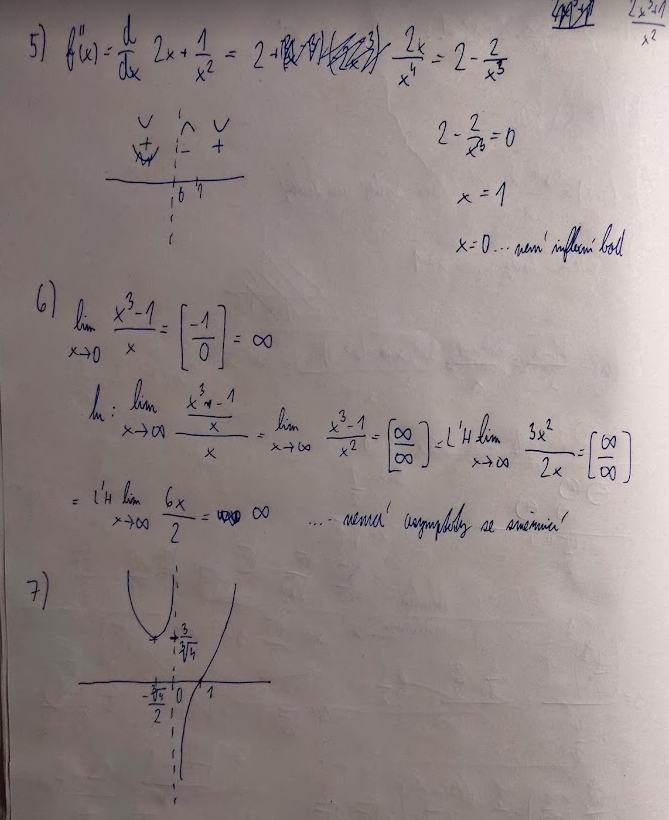 2x³+1
x²
5) f''(x) = d/dx 2x + 1/x² = 2 + 2x/x⁴ = 2 - 2/x³
∪ ∩ ∪
+ - +
0 1
2 - 2/x³ = 0
x = 1
x = 0 ... není inflexní bod
6) lim x→0 x³-1/x = [-1/0] = ∞
lim x→∞ x³-1/x / x = lim x→∞ x³-1/x² = [∞/∞] = L'H lim x→∞ 3x²/2x = [∞/∞]
= L'H lim x→∞ 6x/2 = ∞ ... nemá asymptoty se směrnicí
7)
3/∛4
-∛4/2 0 1